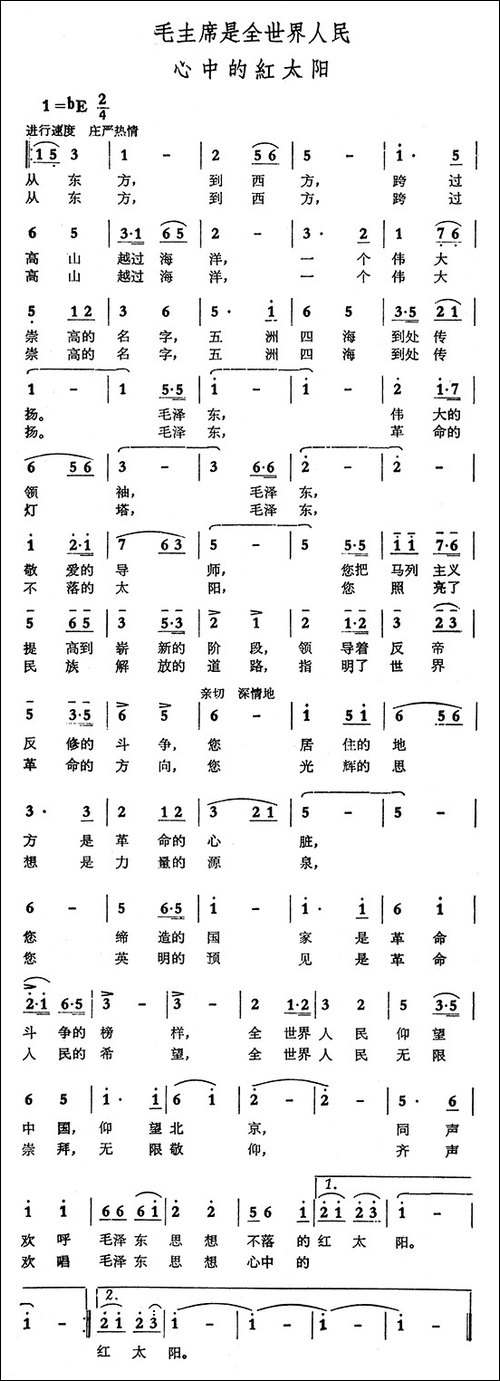 毛主席是全世界人民
心中的紅太阳
1=bE 2/4
进行速度 庄严热情
15 3 | 1 - | 2 56 | 5 - | i· 5 |
从东方，到西方，跨过
从东方，到西方，跨过
6 5 | 3·1 65 | 2 - | 3· 2 | 1 76 |
高山越过海洋，一个伟大
高山越过海洋，一个伟大
5 12 | 3 6 | 5· i | 6 5 | 3·5 21 |
崇高的名字，五洲四海到处传
崇高的名字，五洲四海到处传
1 - | 1 5·5 | i - | i - | 2 i·7 |
扬。毛泽东，伟大的
扬。毛泽东，革命的
6 56 | 3 - | 3 6·6 | 2 - | 2 - |
领袖，毛泽东，
灯塔，毛泽东，
i 2·i | 7 63 | 5 - | 5 5·5 | i i 7·6 |
敬爱的导师，您把马列主义
不落的太阳，您照亮了
5 65 | 3 5·3 | 2 1 | 2 1·2 | 3 23 |
提高到崭新的阶段，领导着反帝
民族解放的道路，指明了世界
亲切 深情地
5 3·5 | 6 5 | 6 - | i 5i | 6 56 |
反修的斗争，您居住的地
革命的方向，您光辉的思
3· 3 | 2 12 | 3 21 | 5 - | 5 - |
方是革命的心脏，
想是力量的源泉，
6 - | 5 6·5 | i - | i· i | 6 i |
您缔造的国家是革命
您英明的预见是革命
2·i 6·5 | 3 - | 3 - | 2 1·2 | 3 2 | 5 3·5 |
斗争的榜样，全世界人民仰望
人民的希望，全世界人民无限
6 5 | i· i | 6 i | 2 - | 2 - | 5· 6 |
中国，仰望北京，同声
崇拜，无限敬仰，齐声
1.
i i | 66 6i | 2 2 | 56 i | 2i 23 | i - |
欢呼毛泽东思想不落的红太阳。
欢唱毛泽东思想心中的
2.
i - :| 2i 23 | i - | i - | i - |
红太阳。